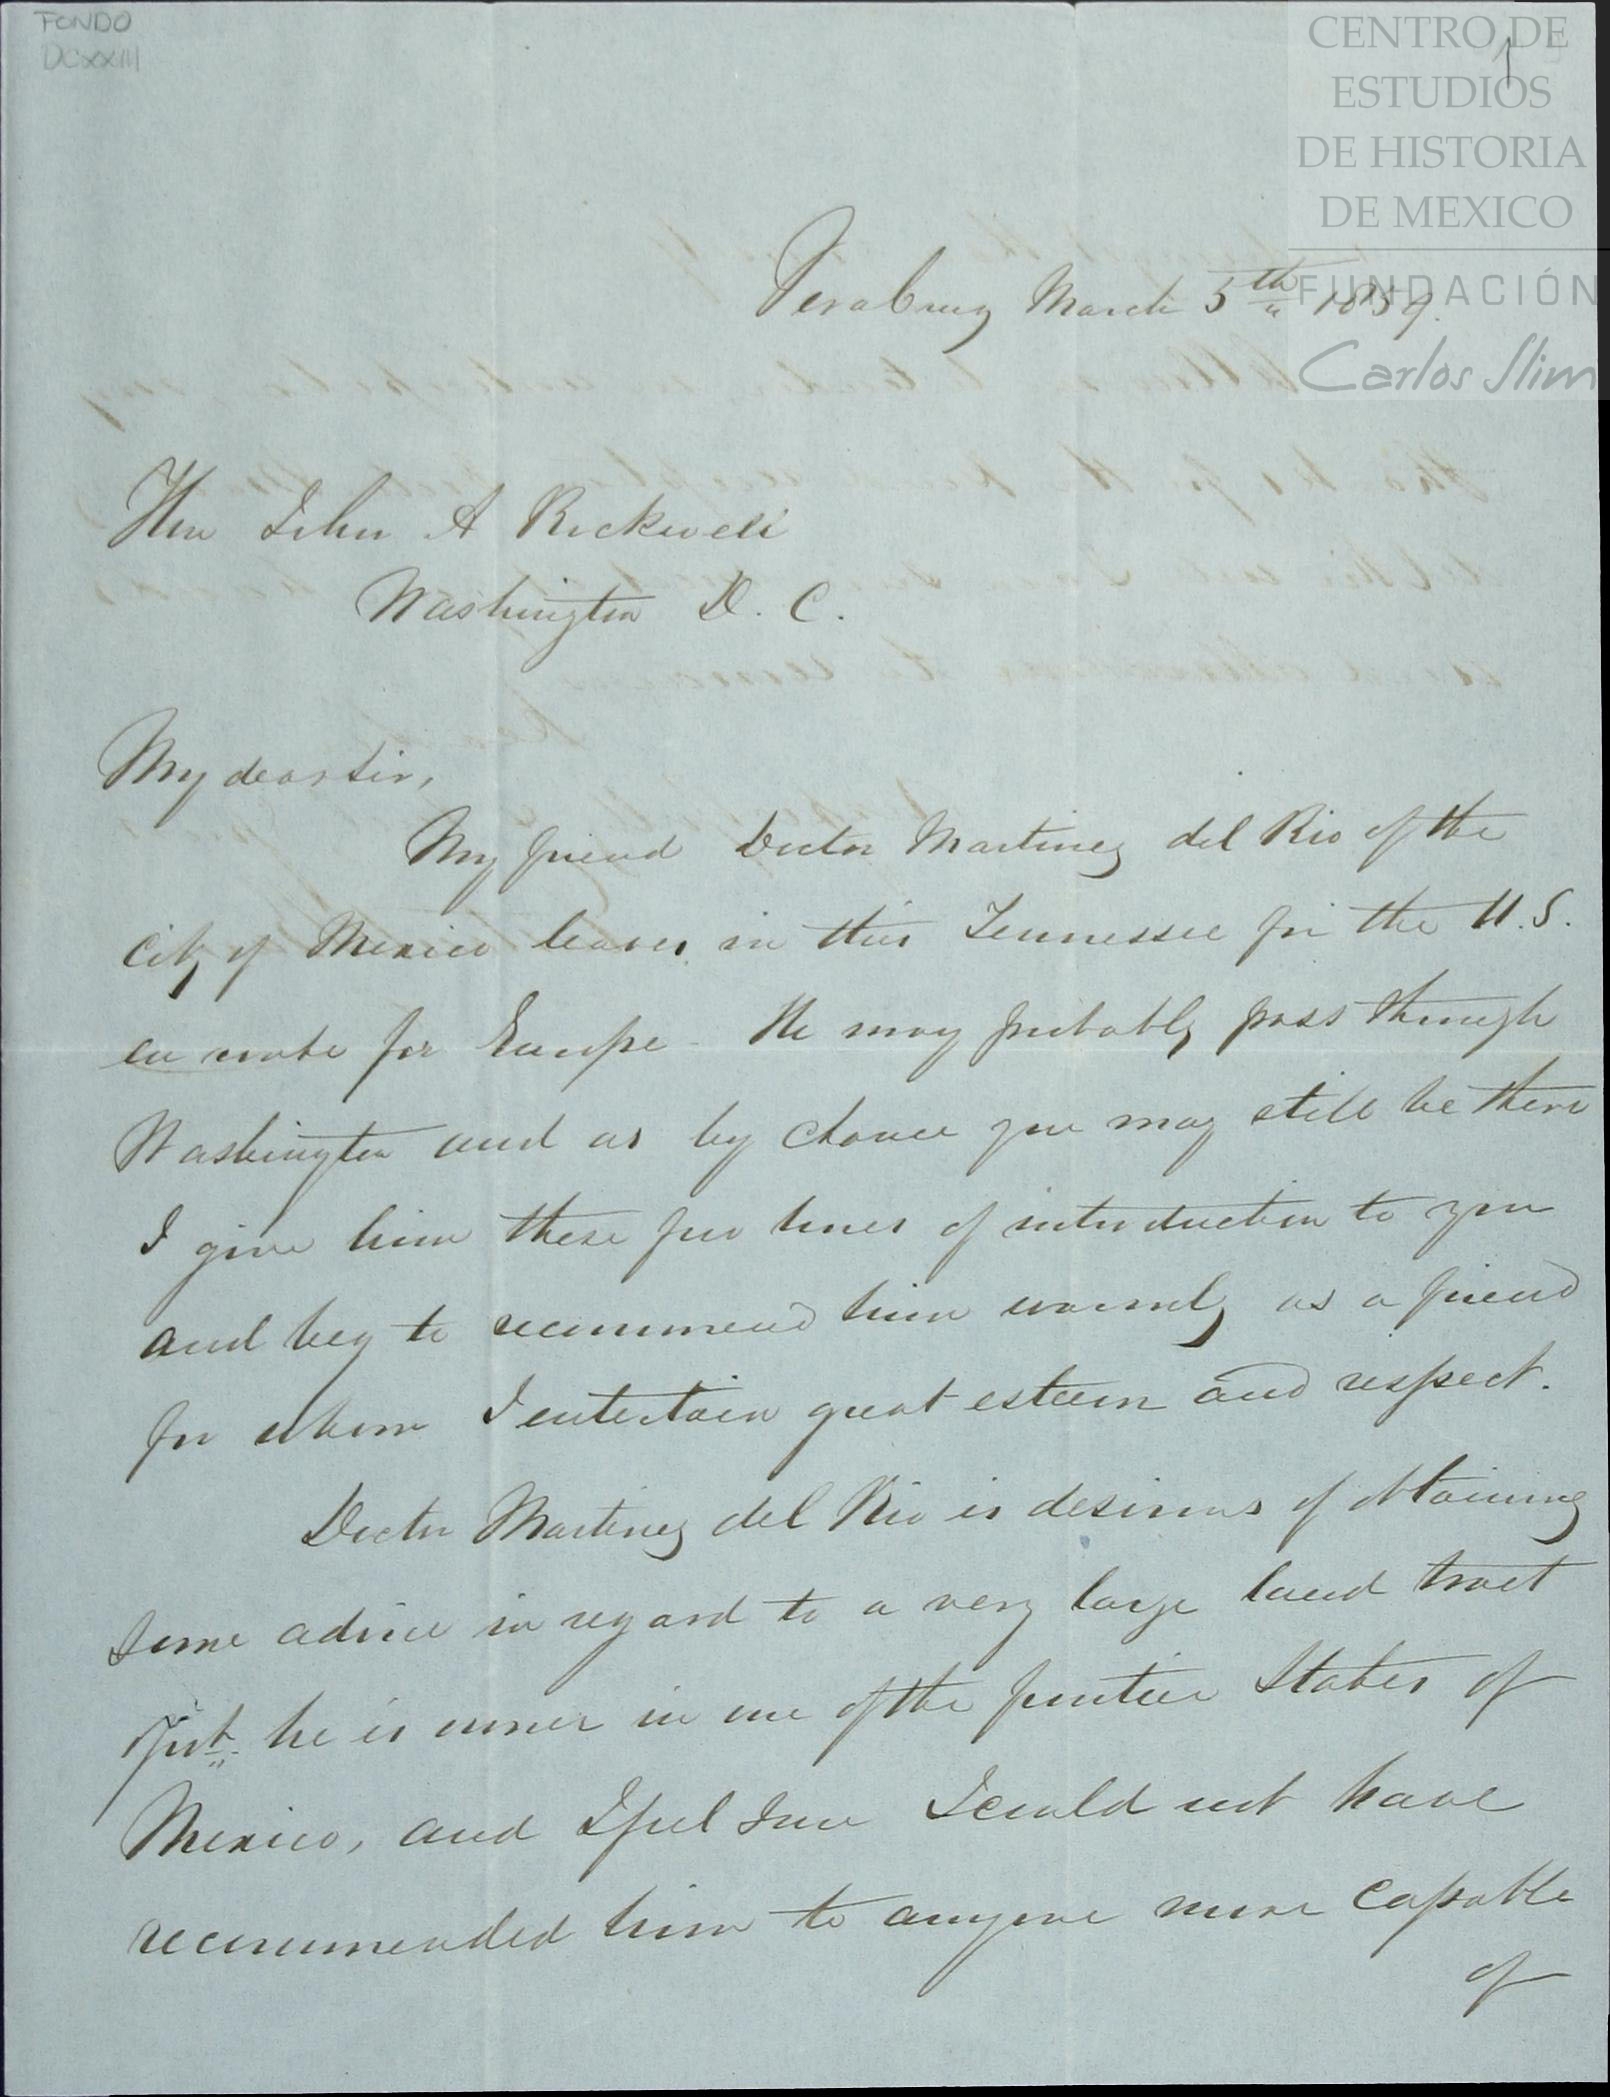 FONDO
DCXXIII
1
CENTRO DE
ESTUDIOS
DE HISTORIA
DE MEXICO
FUNDACIÓN
Carlos Slim
Veracruz March 5th 1859.
Hon John A Rockwell
Washington D. C.
My dear sir,
My friend Doctor Martinez del Rio of the
City of Mexico leaves in this Tennessee for the U.S.
en route for Europe - He may probably pass through
Washington and as by chance you may still be there
I give him these few lines of introduction to you
and beg to recommend him warmly as a friend
for whom I entertain great esteem and respect.
Doctor Martinez del Rio is desirous of obtaining
some advice in regard to a very large land tract
he is owner in one of the frontier States of
Mexico, and I feel sure I could not have
recommended him to anyone more capable
of